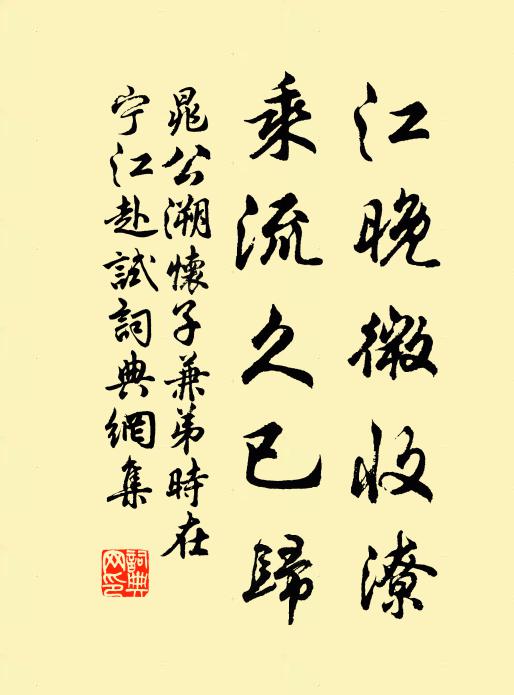 江晚微收潦
乘流久已歸
晁公溯懷子兼弟時在
宁江赴試詞典網集
詞典網印